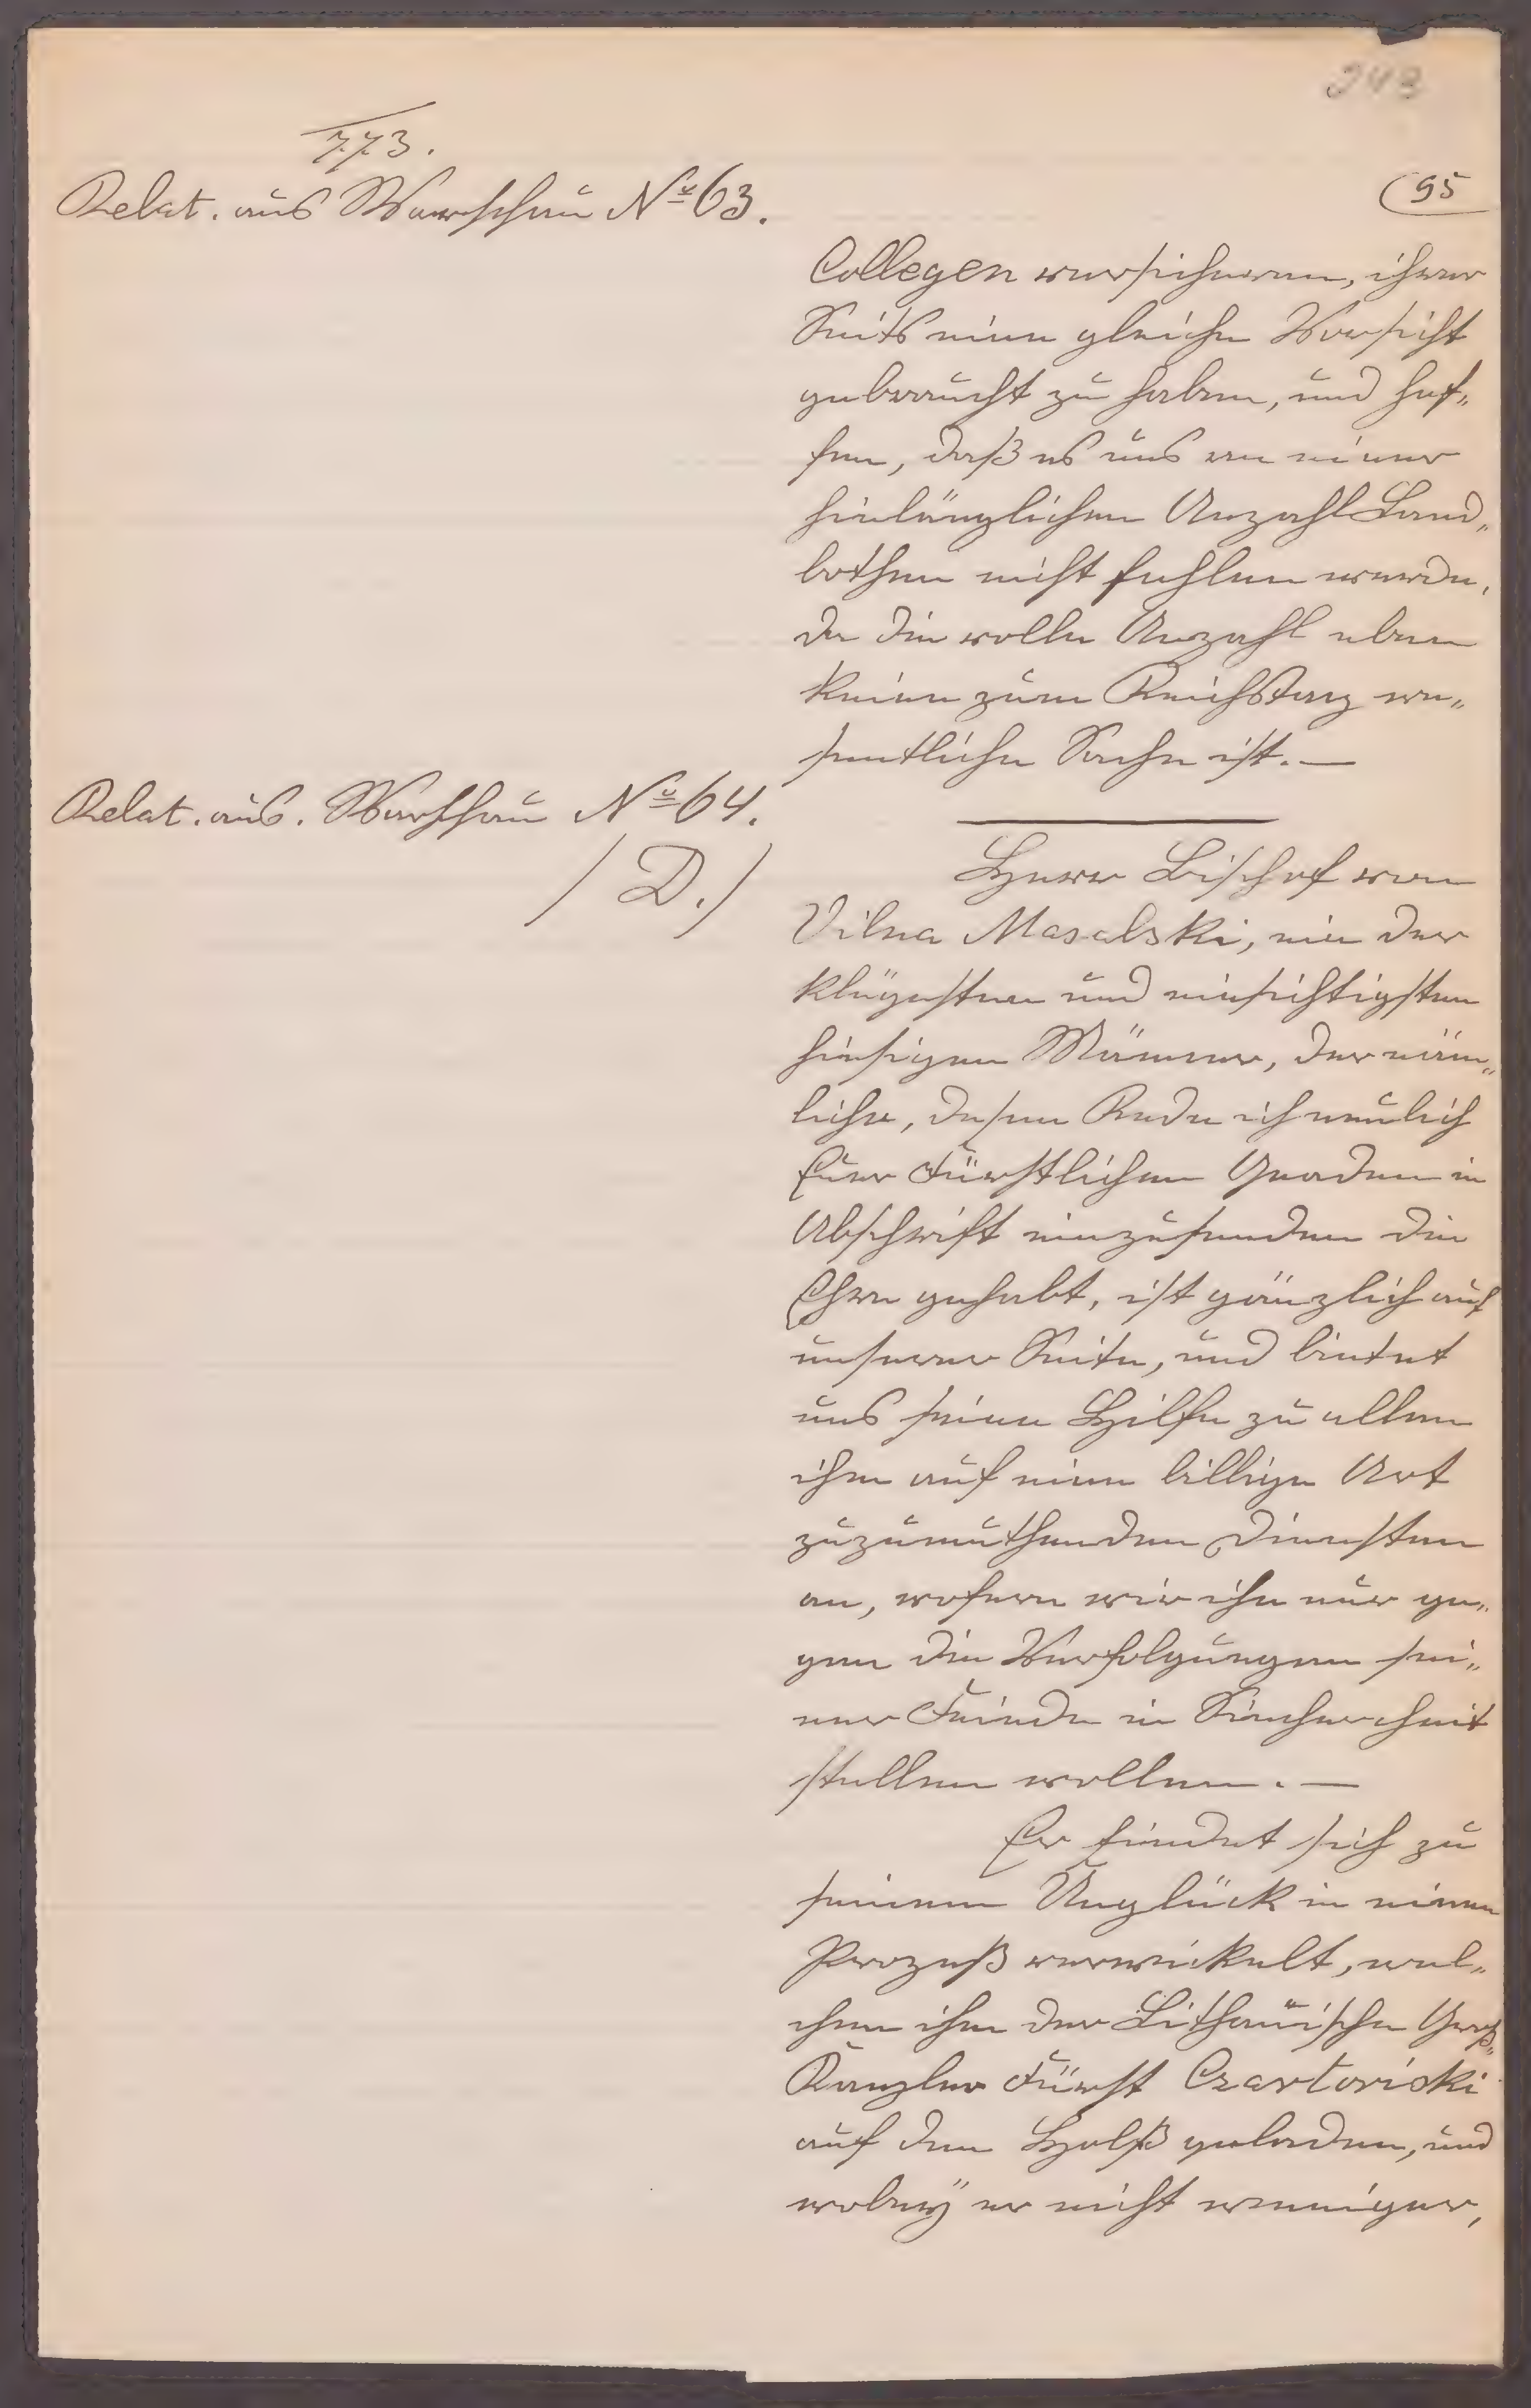 243
773.
95
Relat. aus Warschau No 63.
Collegen versicheren, ihrer
Seits eine gleiche Vorsicht
gebraucht zu haben, und hof„
fen, daß es uns an einer
hinlänglichen Anzahl Land„
bothen nicht fehlen werde,
da die volle Anzahl eben
keine zum Reichstag we„
sentliche Sache ist. —
Relat. aus. Warschau No 64.
/ D. /
Herr Bischof von
Vilna Masalski, ein der
klügesten und einsichtigsten
hiesigen Männer, der näm„
liche, dessen Rede ich neulich
Euer Fürstlichen Gnaden in
Abschrift einzusenden die
Ehre gehabt, ist gänzlich auf
unserer Seite, und bietet
uns seine Hilfe zu allen
ihm auf eine billige Art
zuzumuthenden Diensten
an, wofern wir ihn nur ge„
gen die Verfolgungen sei„
ner Feinde in Sicherheit
stellen wollen. —
Er findet sich zu
seinem Unglück in einen
Prozeß verwickelt, wel„
chen ihm der Lithauische Groß„
Kanzler Fürst Czartoriski
auf den Halß geladen, und
wobeÿ er nicht weniger,